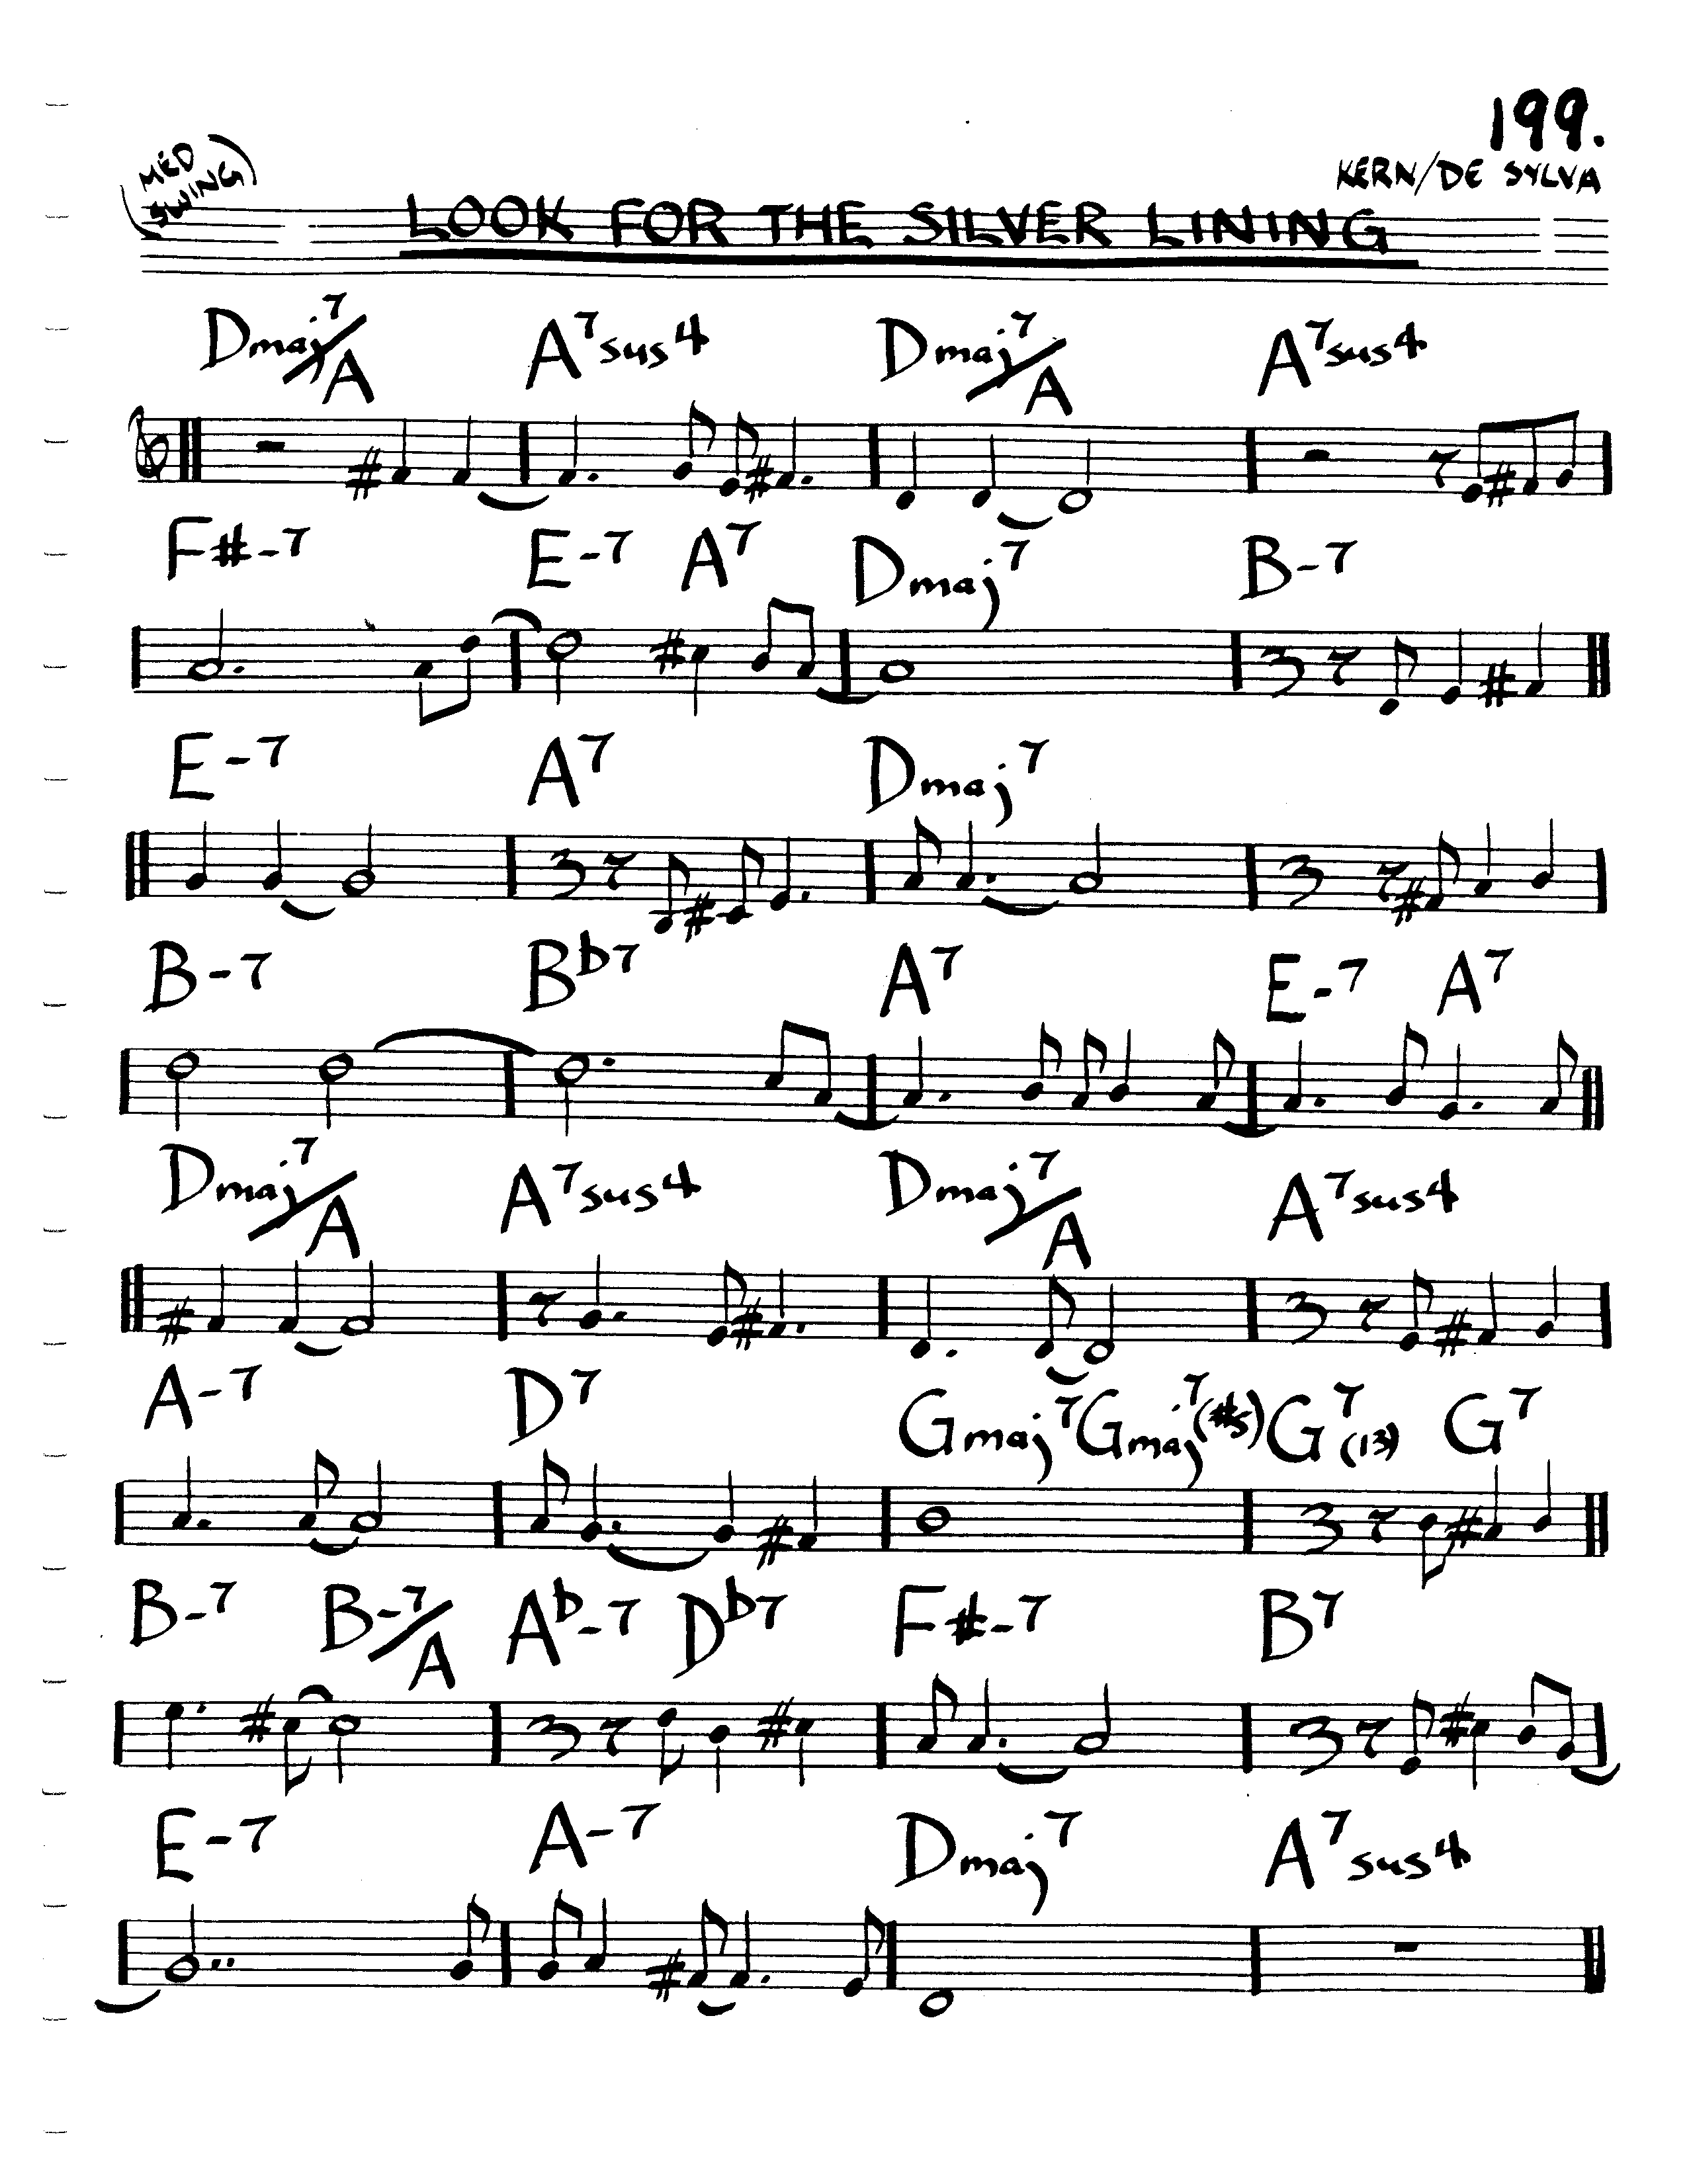 199.
(MED SWING)
KERN/DE SYLVA
LOOK FOR THE SILVER LINING
Dmaj7/A A7sus4 Dmaj7/A A7sus4
F#-7 E-7 A7 Dmaj7 B-7
E-7 A7 Dmaj7
B-7 Bb7 A7 E-7 A7
Dmaj7/A A7sus4 Dmaj7/A A7sus4
A-7 D7 Gmaj7 Gmaj7(#5) G7(13) G7
B-7 B-7/A Ab-7 Db7 F#-7 B7
E-7 A-7 Dmaj7 A7sus4